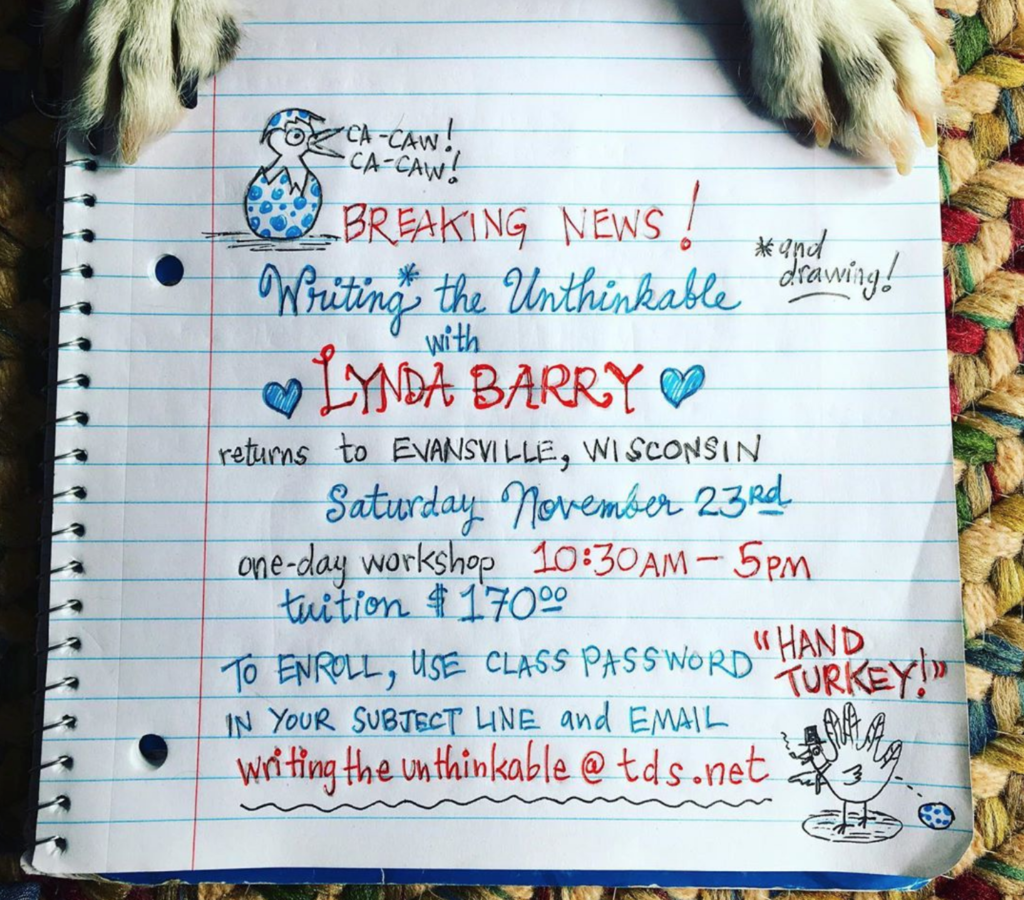 CA-CAW!
CA-CAW!
BREAKING NEWS!
*and
drawing!
Writing* the Unthinkable
with
LYNDA BARRY
returns to EVANSVILLE, WISCONSIN
Saturday November 23rd
one-day workshop 10:30AM - 5PM
tuition $17000
TO ENROLL, USE CLASS PASSWORD "HAND
TURKEY!"
IN YOUR SUBJECT LINE and EMAIL
writingtheunthinkable@tds.net